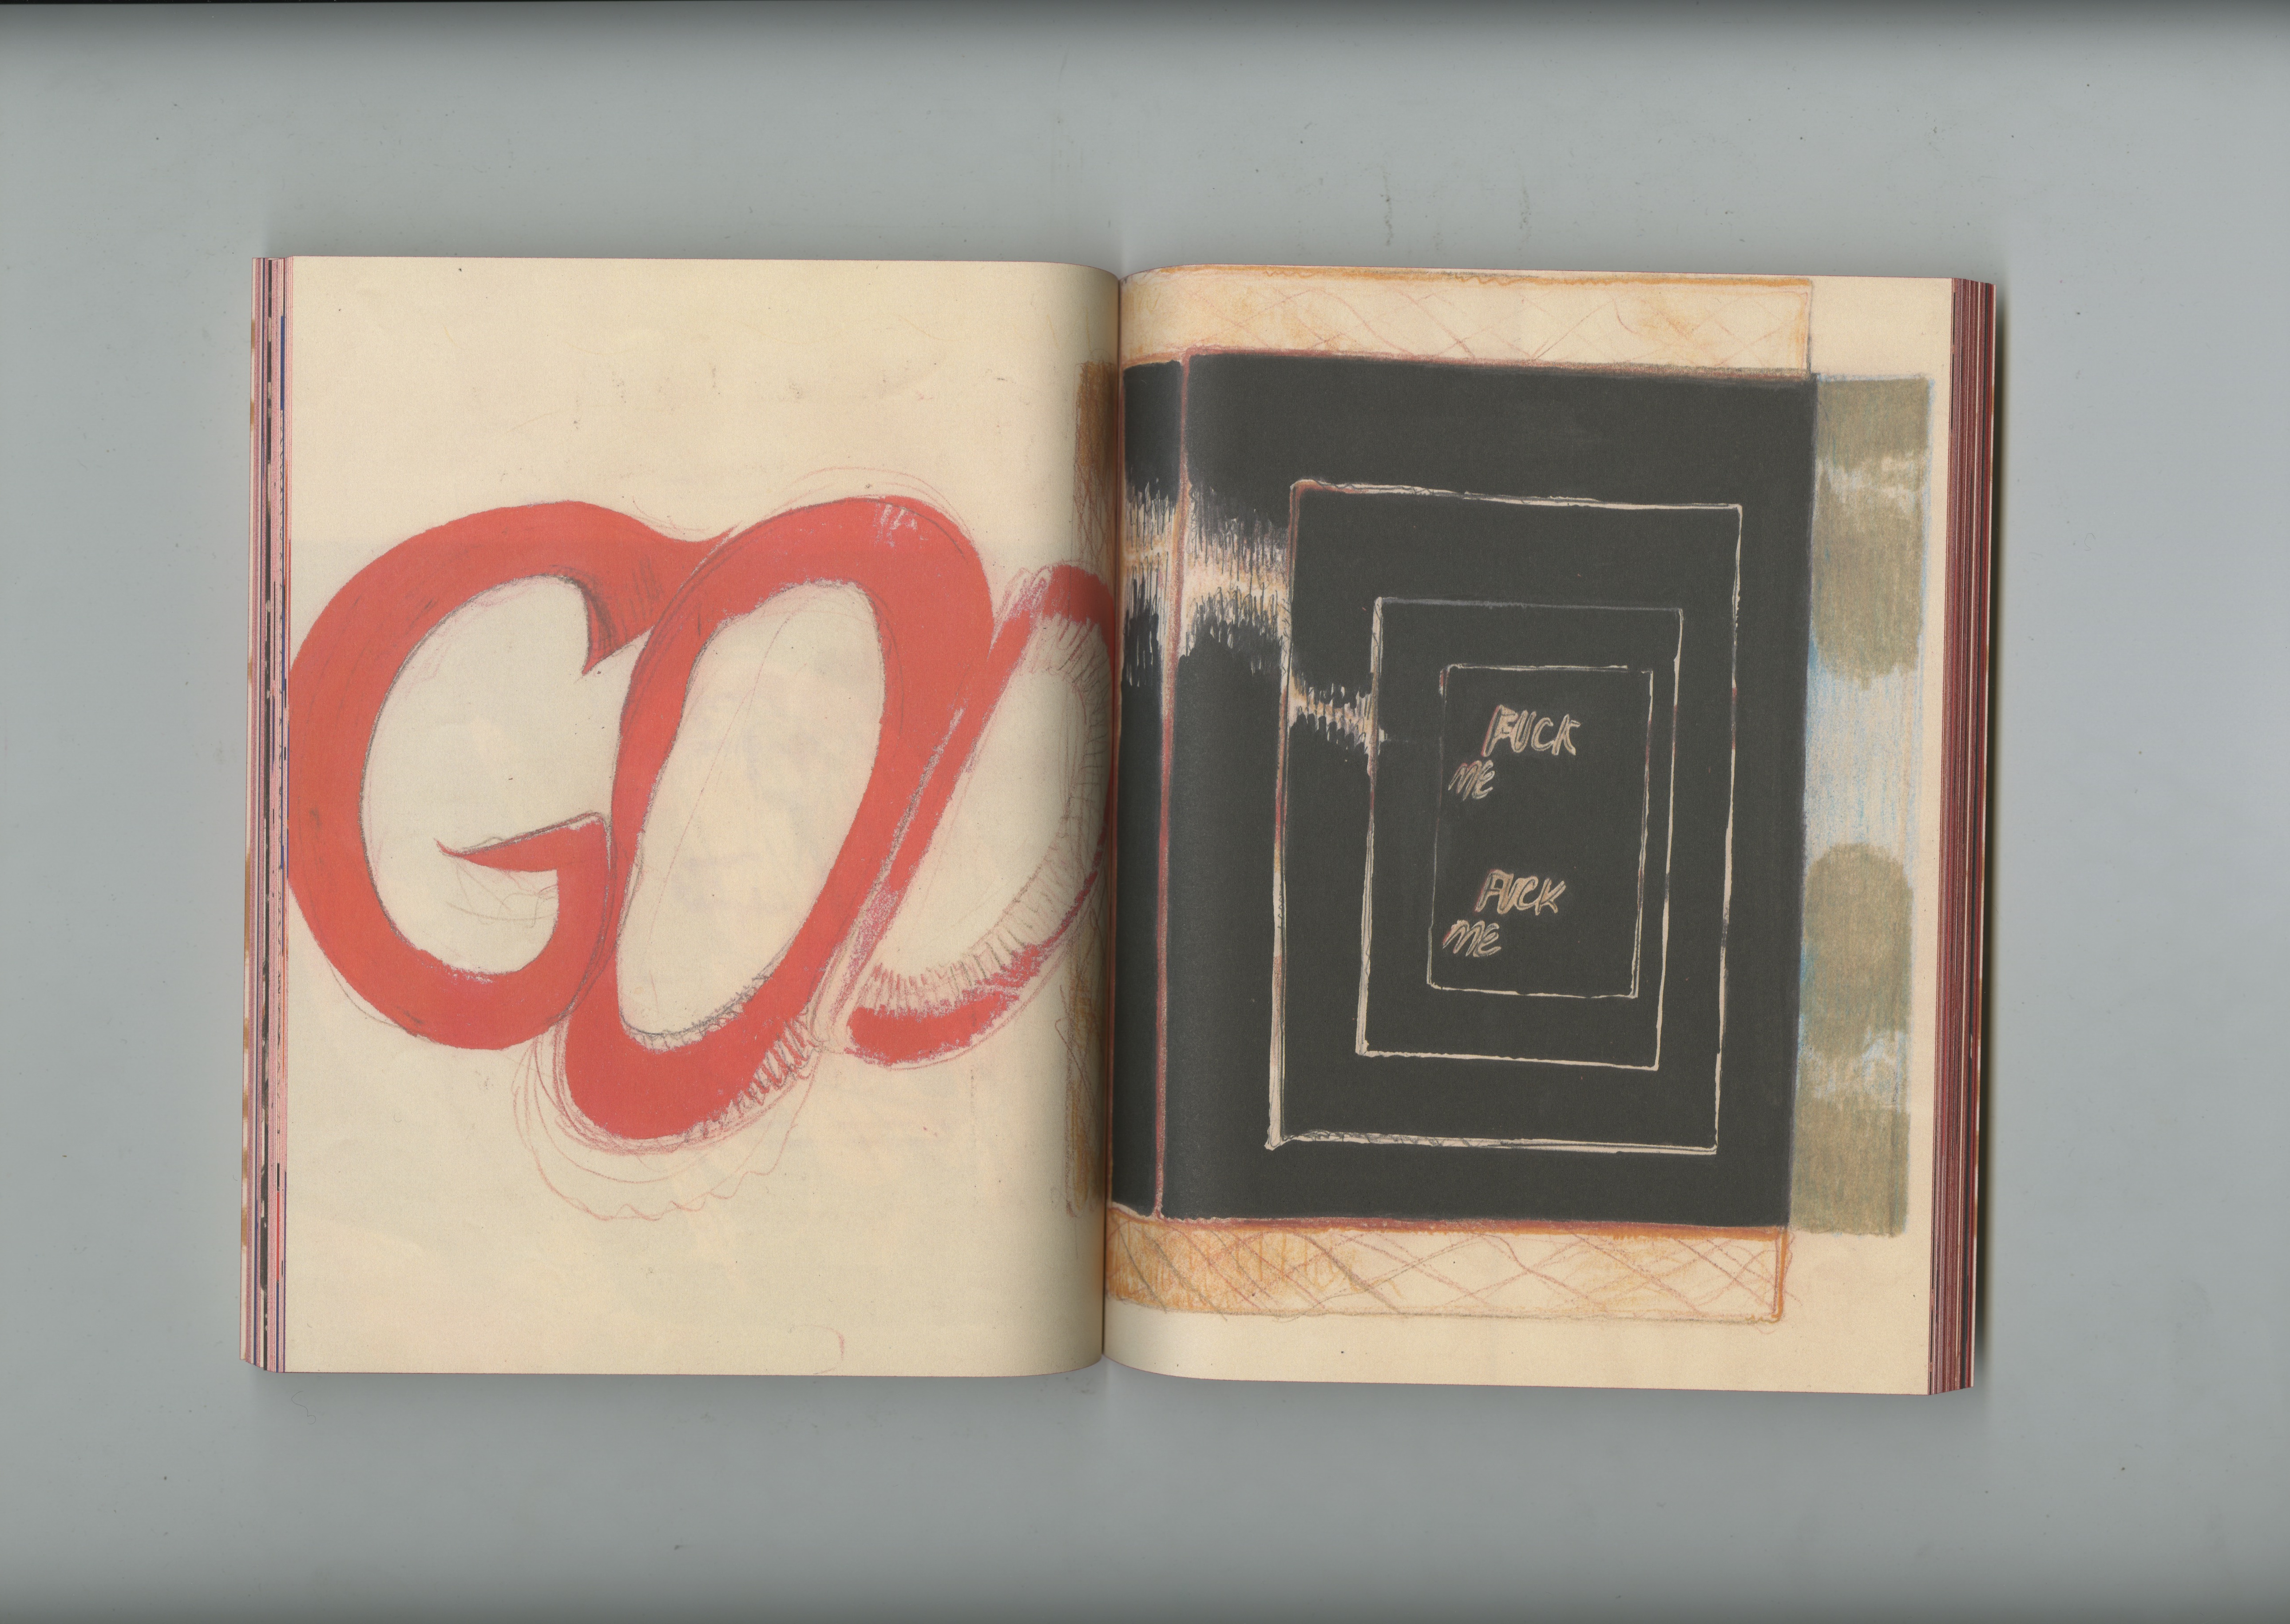 GOD
FUCK
ME
FUCK
ME